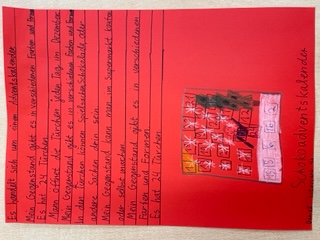 Es handelt sich um einen Adventskalender
Mein Gegenstand gibt es in verschiedenen Farben und Formen
Es hat 24 Türchen
Mann öffnet Türchen jeden Tag im Dezember
Mein Gegenstand gibt es in verschiedenen Farben und Formen
In den Türchen können Spielsachen Schokolade oder
andere Sachen drin sein
Mein Gegenstand kann man im Supermarkt kaufen
oder selbst machen
Mein Gegenstand gibt es in verschiedenen
Farben und Formen
Es hat 24 Türchen
Schokoadventskalender